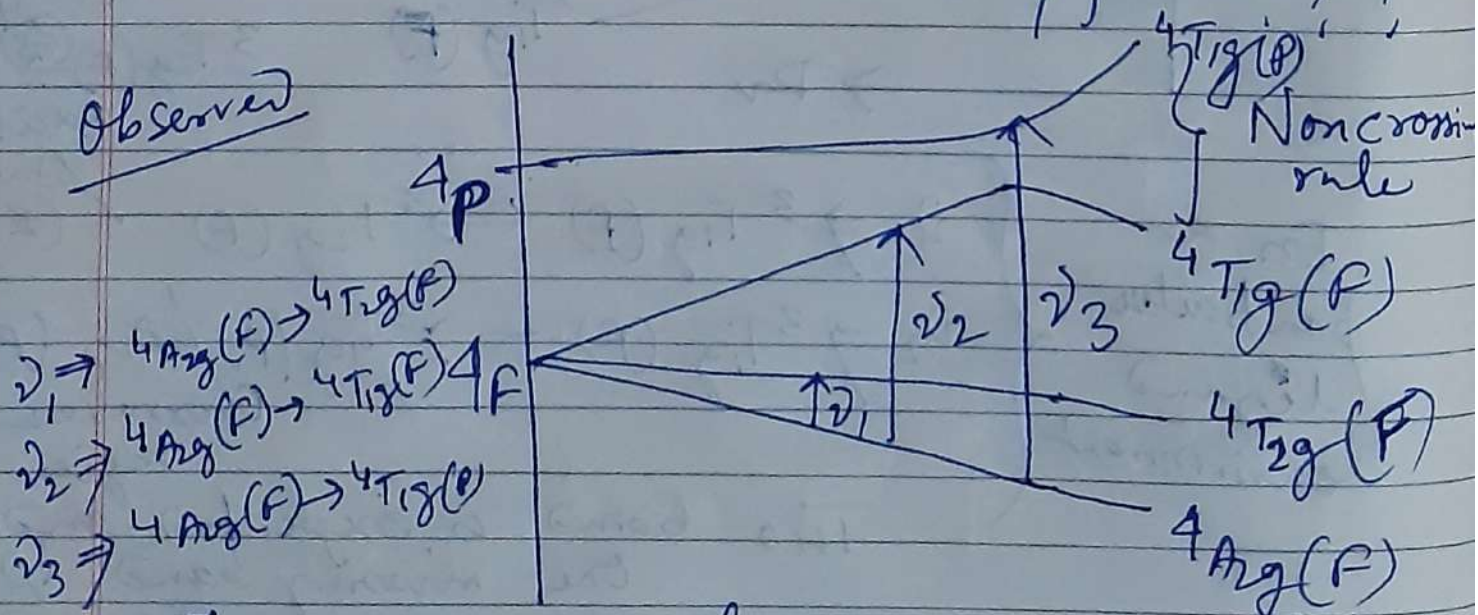 Observed
4P
ν1 ⇒ 4A2g(F) → 4T2g(F)
ν2 ⇒ 4A2g(F) → 4T1g(F)
ν3 ⇒ 4A2g(F) → 4T1g(P)
4F
ν1
ν2
ν3
4T1g(P)
Noncrossin
rule
4T1g(F)
4T2g(F)
4A2g(F)